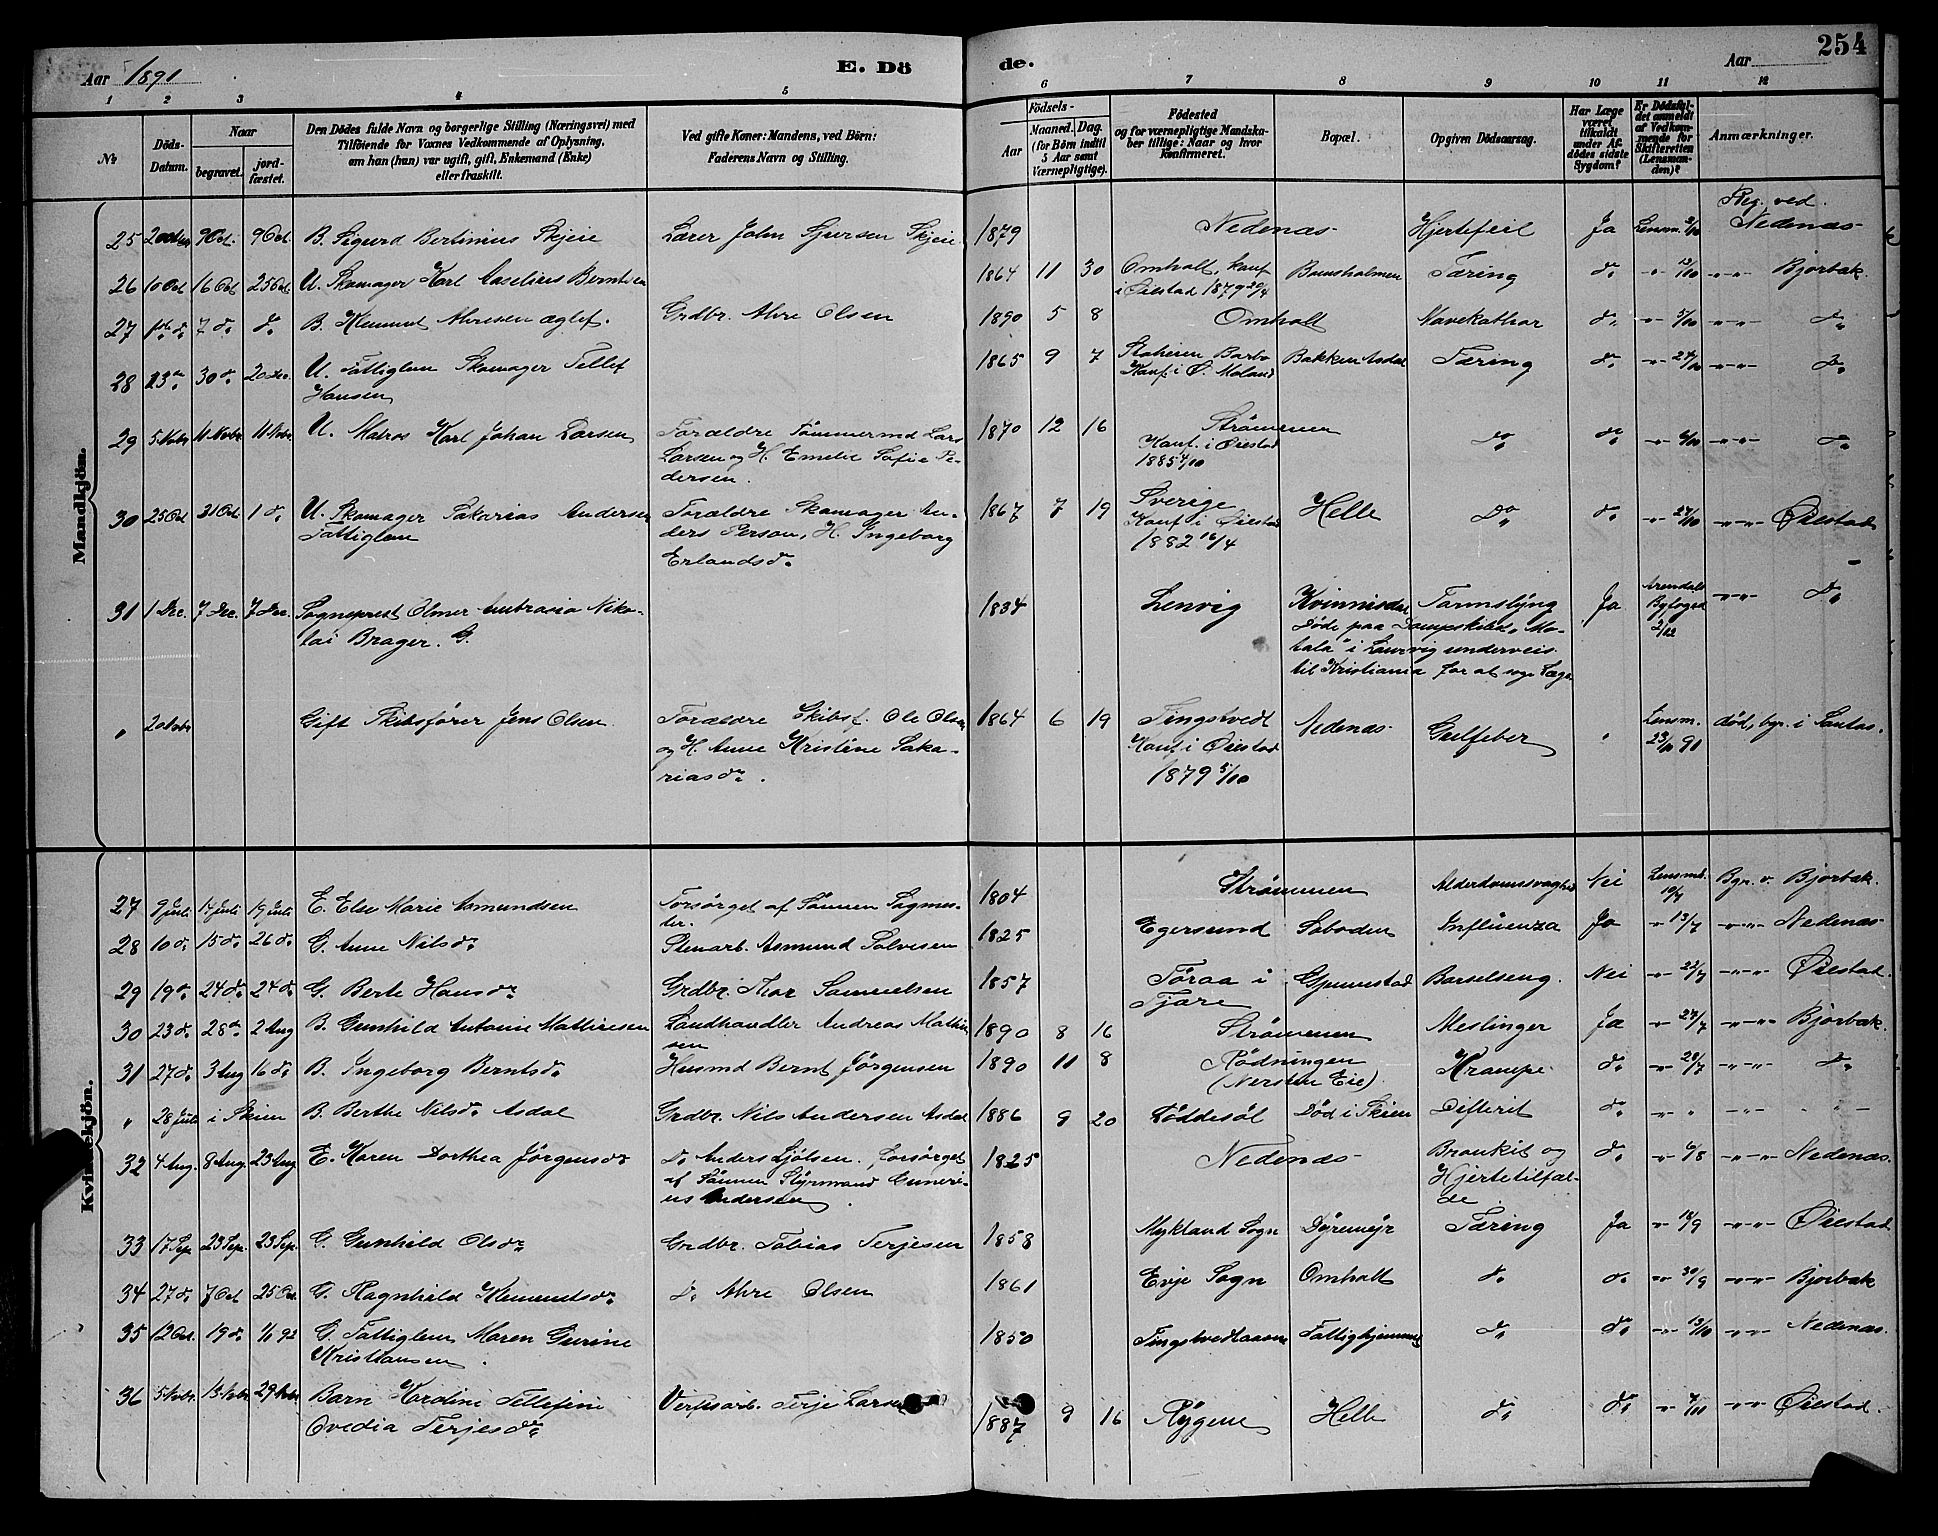 Aar 1891
E. Dö
de.
Aar
254
1 2 3 4 5 6 7 8 9 10 11 12
No
Döds-Datum.
Naar
begravet.
jord-fæstet.
Den Dödes fulde Navn og borgerlige Stilling (Næringsvei) med
Tilföiende for Voxnes Vedkommende af Oplysning,
om han (hun) var ugift, gift, Enkemand (Enke)
eller fraskilt.
Ved gifte Koner: Mandens, ved Börn:
Faderens Navn og Stilling.
Födsels-
Aar
Maaned. Dag.
(for Börn indtil
5 Aar samt
Værnepligtige).
Födested
og for værnepligtige Mandska-
ber tillige: Naar og hvor
Konfirmeret.
Bopæl.
Opgiven Dödsaarsag.
Har Læge
været
tilkaldt
under Af-
dödes sidste
Sygdom?
Er Dödsfal-
det anmeldt
af Vedkom-
mende for
Skifteretten
(Lensman-
den)?
Anmærkninger.
Mandkjön.
25 9 Oct. 9 Oct B. Sigurd Bertinius Skjeie Lærer John Sjursen Skjeie 1879 Nedenæs Hjertefeil Ja Lensm. Beg. ved Nedenæs
26 10 Oct 16 Oct 25 Oct U. Skomager Karl Aaselius Berntsen 1864 11 30 Omholt, konf i Øiestad 1879 20/4 Bunsholmen Tæring do 13/10 Bjorbæk
27 7 do do B. Klemmet Ahresen ægtef. Grdbr. Ahre Olsen 1890 5 8 Omholt Mavekathar do 5/10 do
28 23 do 30 do 20 Dec. U. Fattiglem Skomager Tellef
Hansen 1865 9 7 Barbo Konf. i Ø. Moland Bakken Asdal Tæring do 24/10 do
29 5 Nobr 11 Nobr 11 Nobr U. Matros Karl Johan Larsen Forældre Tømmermd Lars
Larsen og H. Emelie Sofie Pe-
dersen. 1870 12 16 Strømmen
Konf. i Øiestad
1885 4/10 do do do
30 25 Oct 31 Oct 1 do U. Skomager Sakarias Andersen
Fattiglem Forældre Skomager An-
ders Person, H. Ingeborg
Erlandsdr. 1867 7 19 Sverige
Konf. i Øiestad
1882 16/4 Helle do do 27/10 Øiestad
31 1 Dec. 7 Dec. 7 Dec. Sogneprest Olmer Ambrosio Niko-
lai Brager. G. 1834 Lenvig Kvinnisdal
Døde paa Dampskibet „Mo-
tala" i Laurvig underveis
til Kristiania for at søge Læge Ja Arendals
Byfoged
2/12 do
" Gift Skibsfører Jens Olsen Forældre Skibsf. Ole Olsen
og H. Anne Kristine Saka-
riasdr. 1864 6 19 Tingstvedt
Konf. i Øiestad
1879 5/10 Nedenæs Gulfeber " Lensm.
91 død, bgr. i Santos.
Kvindekjön.
27 9 Juli 14 Juli 19 Juli E. Else Marie Asmundsen Forsørget af Sønnen Sagmes-
ter. 1804 Strømmen Alderdomssvaghed Nei Lensmd.
10/7 Bgr. v. Bjorbæk.
28 10 do 15 do 26 do G. Anne Nilsdr Stenarb. Asmund Salvesen 1825 Egersund Saboden Influenza Ja 13/7 Nedenæs
29 19 do 24 do 24 do G. Berte Hansdr Grdbr. Thor Samuelsen 1857 Føraa i
Tjøre Gjennestad Barselseng. Nei 22/7 Øiestad.
30 23 do 28 do 2 Aug B. Gunhild Antonie Mathisen Landhandler Andreas Mathi
sen 1890 8 16 Strømmen Meslinger Ja 27/7 Bjorbæk.
31 27 do 3 Aug 16 do B. Ingeborg Berntsdr Husmd Bernt Jørgensen 1890 11 8 Rødningen
(Nersten Eie) Krampe do 28/7 do
" 28 Juli i Skien B. Berthe Nilsdr Asdal Grdbr. Nils Andersen Asdal 1886 9 20 Løddesøl Død i Skien Difterit do "
32 4 Aug. 8 Aug. 23 Aug E. Karen Dorthea Jørgensdr do Anders Ljølsen. Forsørget
af Sønnen Styrmand Guneri-
us Andersen 1825 Nedenæs Bronkit og
Hjertetilfæl-
de do 6/8 Nedenæs.
33 17 Sep. 23 Sep. 23 Sep. G. Gunhild Olsdr Grdbr. Tobias Terjesen 1858 Mykland Sogn Dyremyr Tæring Ja 18/9 Øiestad
34 27 do 7 Oct 25 Oct G. Ragnhild Klemmetsdr do Ahre Olsen 1861 Evje Sogn Omholt do do 30/9 Bjorbæk
35 12 Oct. 19 do 1/1 92 G. Fattiglem Maren Gurine
Kristiansen 1850 Tingstvedtaasen Fattighjemmet do do 13/10 Nedenæs.
36 5 Nobr. 13 Nobr. 29 Nobr Barn Kardine Tellefine
Ovedia Terjesdr Verftsarb. Terje Larsen 1887 9 16 Rygene Helle do do 7/11 Øiestad.